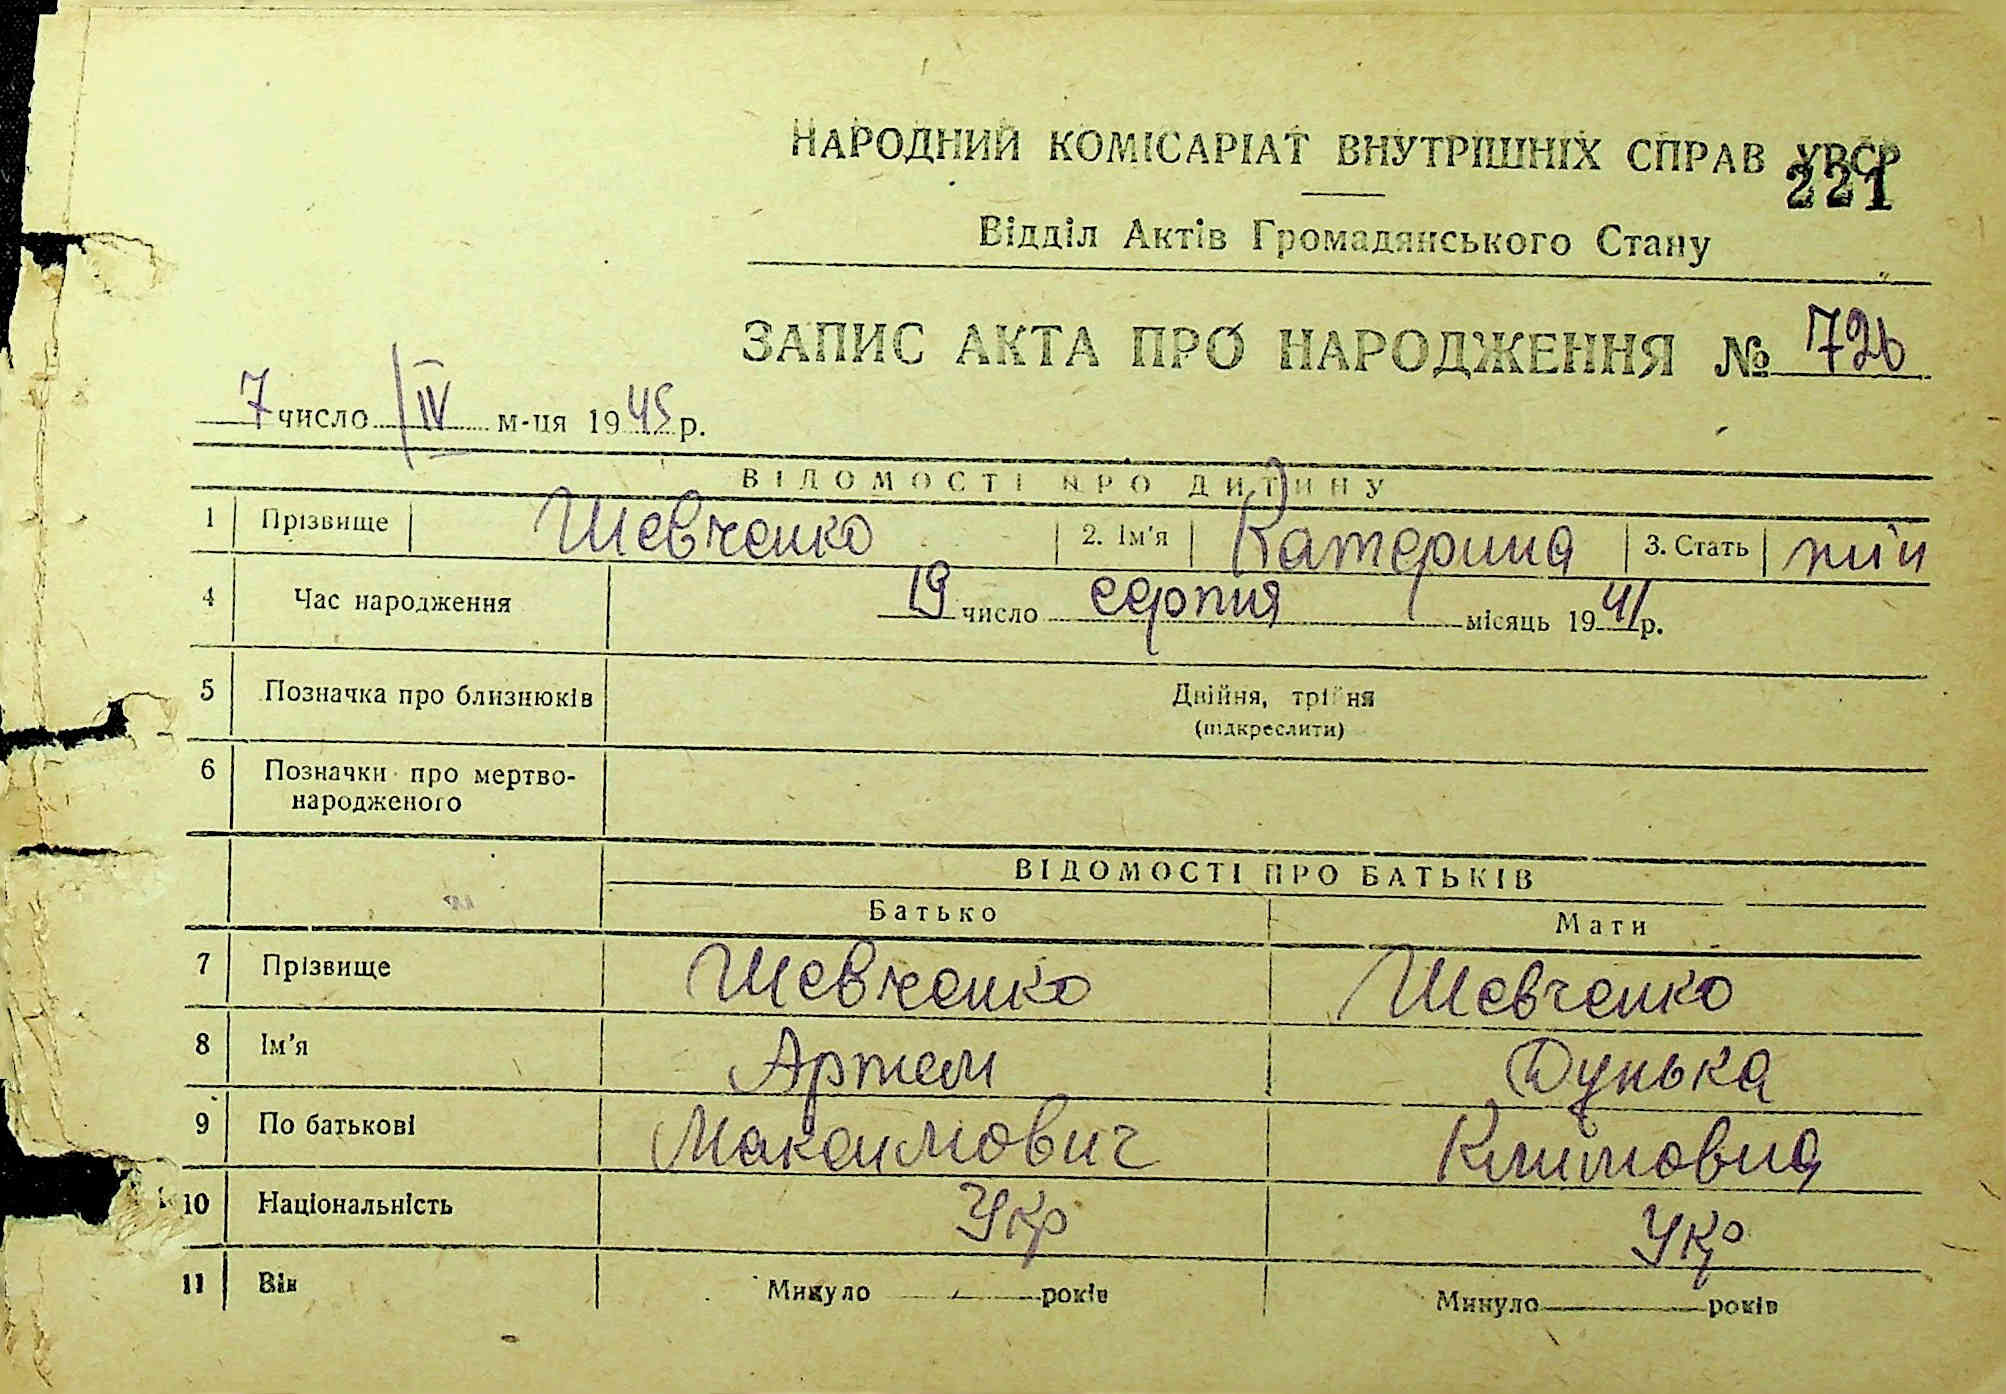 НАРОДНИЙ КОМІСАРІАТ ВНУТРІШНІХ СПРАВ УРСР
221
Відділ Актів Громадянського Стану
ЗАПИС АКТА ПРО НАРОДЖЕННЯ № 726
7 число IV м-ця 1945 р.
ВІДОМОСТІ ПРО ДИТИНУ
1 Прізвище Шевченко 2. Ім'я Катерина 3. Стать
4 Час народження 19 число серпня місяць 1941 р.
5 Позначка про близнюків Двійня, трійня
(підкреслити)
6 Позначки про мертво-
народженого
ВІДОМОСТІ ПРО БАТЬКІВ
Батько Мати
7 Прізвище Шевченко Шевченко
8 Ім'я Артем Дунька
9 По батькові Максимович Климовна
10 Національність Укр Укр
11 Вік Минуло років Минуло років